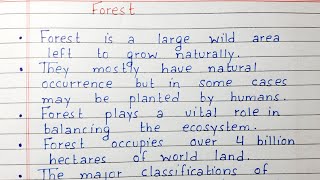 Forest
• Forest is a large wild area
left to grow naturally.
• They mostly have natural
occurrence but in some cases
may be planted by humans.
• Forest plays a vital role in
balancing the ecosystem.
• Forest occupies over 4 billion
hectares of world land.
• The major classifications of